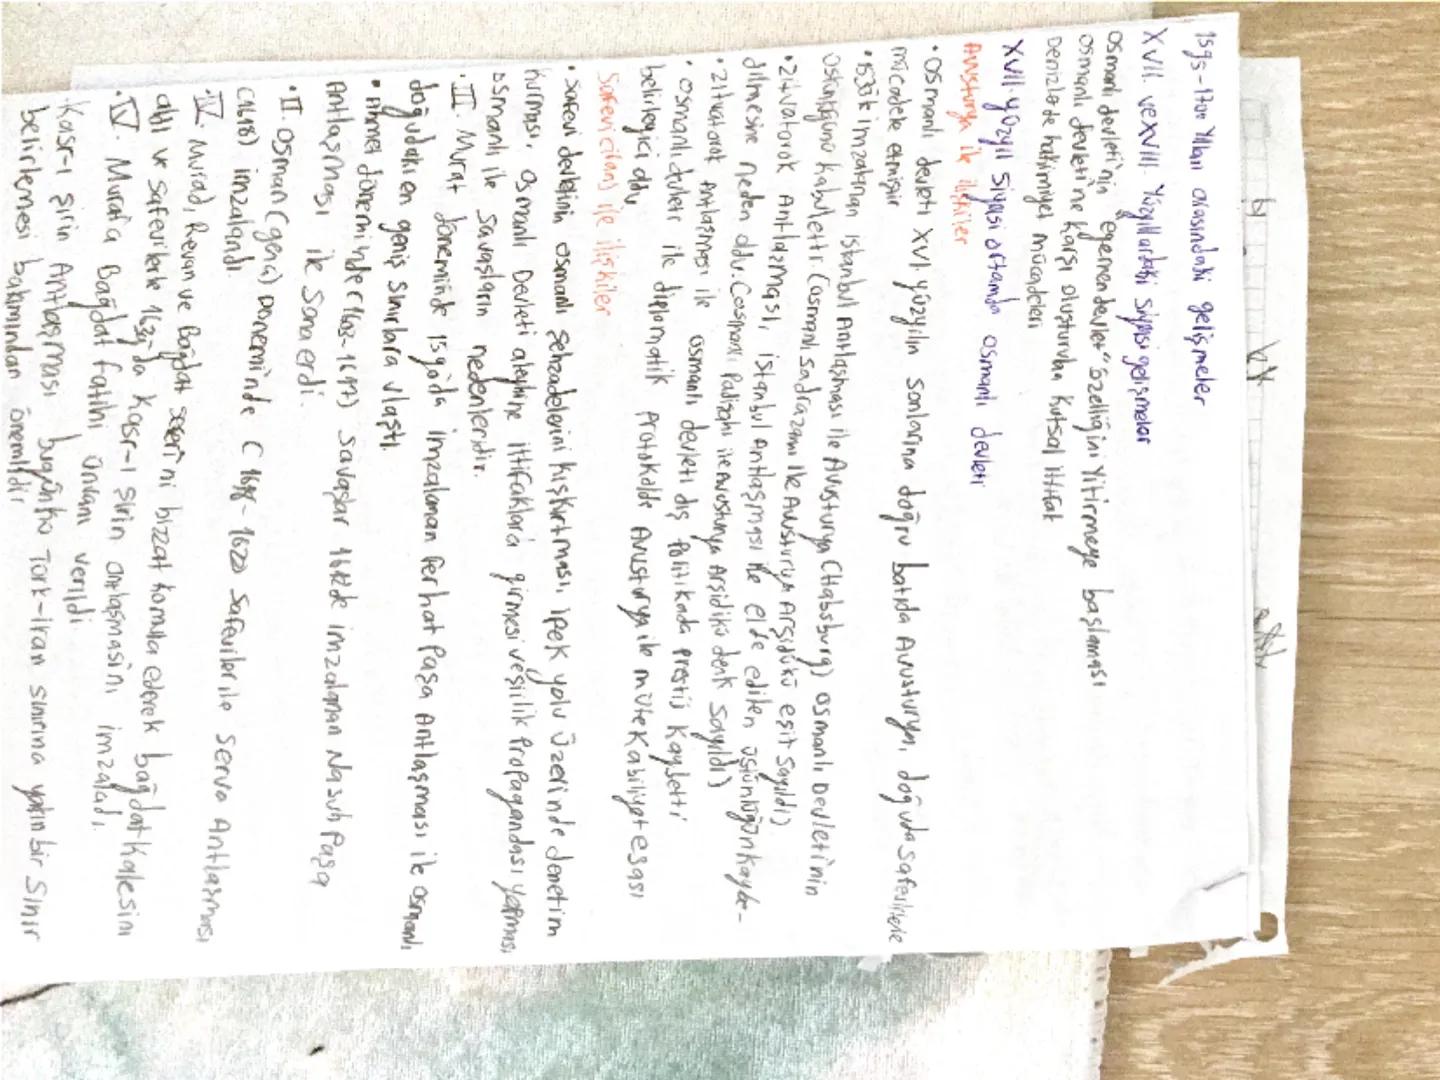 1595-1700 Yılları arasındaki gelişmeler
XVII. ve XVIII. Yüzyıllardaki Siyasi gelişmeler
Osmanlı devleti'nin "egemen devlet" özelliğini Yitirmeye başlaması
Osmanlı devleti'ne karşı oluşturulan Kutsal ittifak
Denizlerde hakimiyet mücadelesi
XVII. yüzyıl siyasi ortamında osmanlı devleti
Avusturya ile ilişkiler
• Osmanlı devleti XVI. yüzyılın sonlarına doğru batıda Avusturya, doğuda safevilerle
mücadele etmiştir
• 1533'te imzalanan istanbul Antlaşması ile Avusturya (Habsburg) osmanlı Devleti'nin
üstünlüğünü kabul etti (osmanlı sadrazamı ile Avusturya Arşidükü eşit sayıldı)
• Zitvatorok Antlaşması, istanbul Antlaşması ile elde edilen üstünlüğün kaybe-
dilmesine neden oldu. (osmanlı Padişahı ile Avusturya Arşidükü denk sayıldı)
• Zitvatorok Antlaşması ile osmanlı devleti dış Politikada prestij kaybetti
• osmanlı devleti ile diplomatik Protokolde Avusturya ile mütekabiliyet esası
belirleyici oldu
Safevi (iran) ile ilişkiler
• Safevi devletinin osmanlı şehzadelerini kışkırtması, ipek yolu üzerinde denetim
kurması, osmanlı Devleti aleyhine ittifaklara girmesi ve şiilik Propagandası yapması
osmanlı ile Savaşların nedenleridir.
• III. Murat döneminde 1590'da imzalanan Ferhat Paşa Antlaşması ile osmanlı
doğudaki en geniş sınırlara ulaştı.
• Ahmet döneminde (1603-1617) savaşlar 1612'de imzalanan Nasuh Paşa
Antlaşması ile Sona erdi.
• II. Osman (genç) Döneminde (1618-1622) Safeviler ile Serav Antlaşması
(1618) imzalandı.
• IV. Murad, Revan ve Bağdat seferini bizzat komuta ederek bağdat Kalesini
aldı ve safevilerle 1639'da Kasr-ı Şirin antlaşmasını imzaladı.
• IV. Murat'a Bağdat fatihi ünvanı verildi
• Kasr-ı şirin Antlaşması bugünkü Türk-iran sınırına yakın bir sınır
belirlemesi bakımından önemlidir